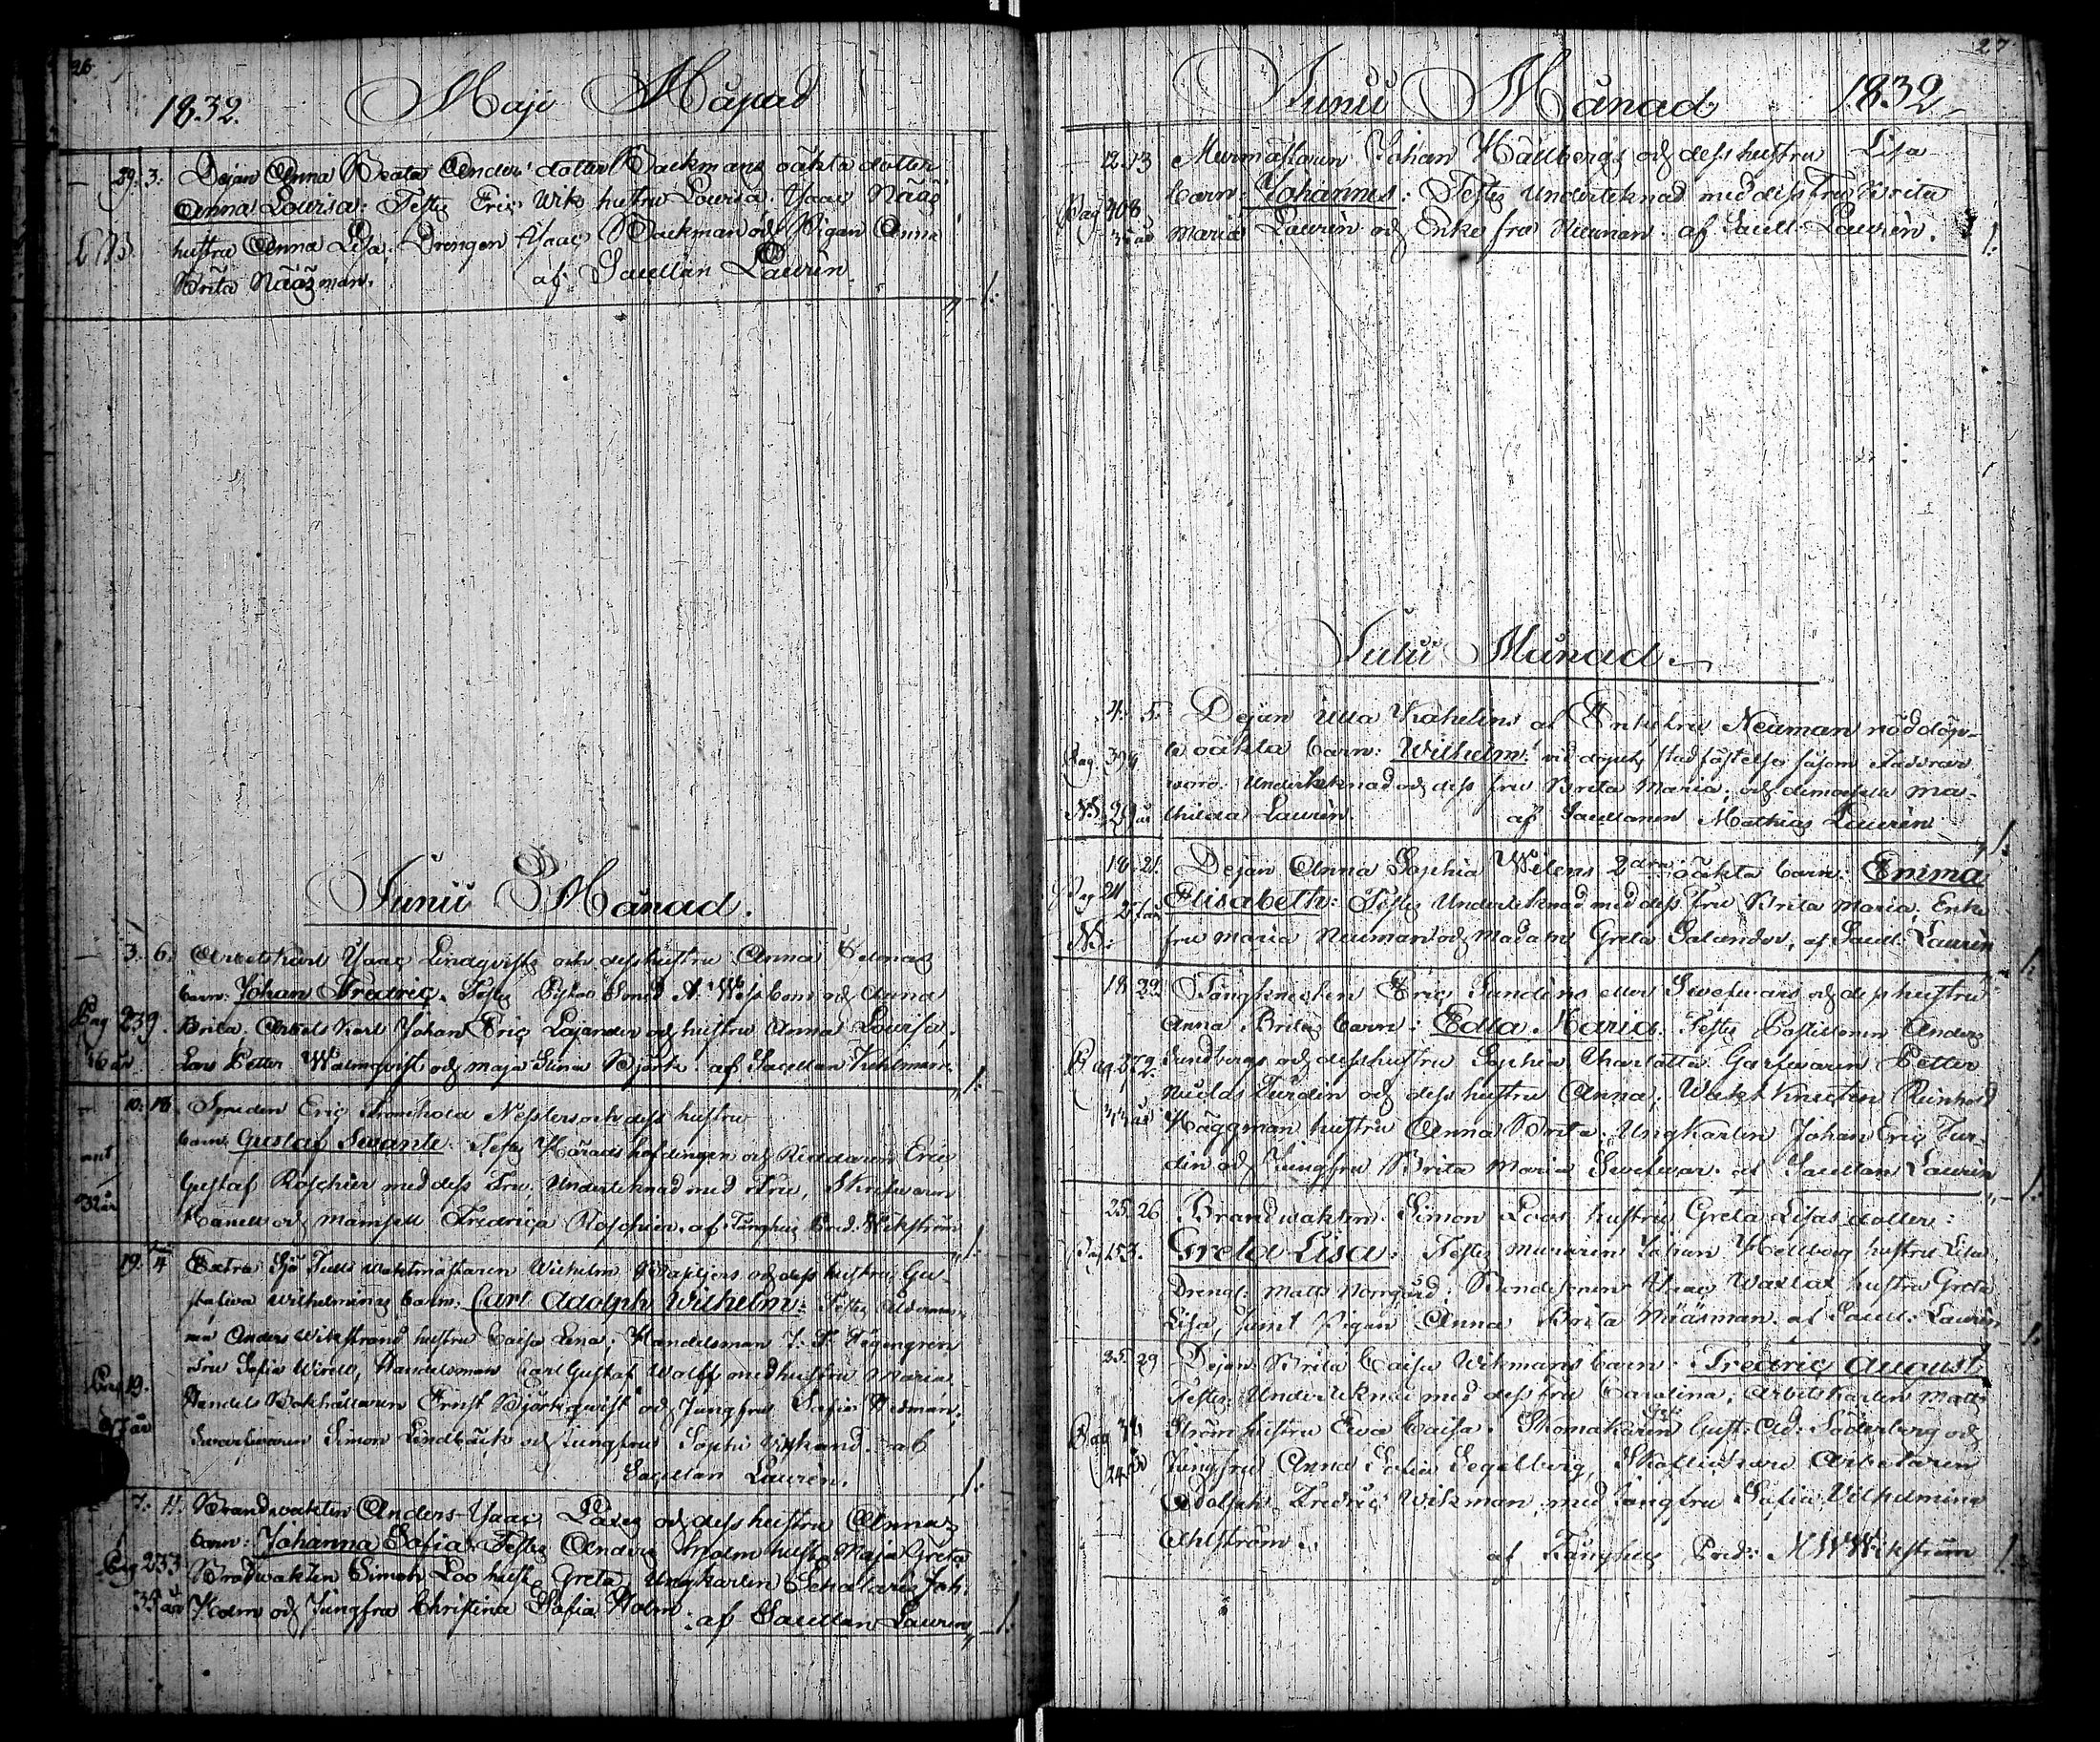 26
1832. Maji Månad
29. 3. Pigan Anna Beata Anders dotter Backmans oäkta dotter
Anna Lovisa: Testes Eric Wiks hustru Lovisa. Ysaac Nääs
hustru Anna Lisa; Drengen Ysaac Backman och Pigan Anna
Brita Nääsman. af Sacellan Laurèn
Junii Månad.
3. 6. Arbets Karl Ysaac Lindqvists och dess hustru Anna
barn: Johan Fredric. Testes Smed A: och Anna
Pag 239. Brita. Arbets Karl Johan Eric Lojander och hustru Anna Lovisa,
Lars Petter Malmqvist och Maja Stina Björk. af Sacellan
10. 18. Smeden Eric Nesslers och dess hustru
barn Gustaf Swante. Testes Häradshöfdingen och Riddaren Eric
Gustaf Roschier med dess Fru, Underteknad med Fru, Skrifvaren
32 år och Mamsell Fredrica Roschier. af Fänghus Pred: Wikström
19. 4 Extra Sjö Tulls Waktmästaren Wilhelm och dess hustru Gu-
stafva Wilhelminas barn: Carl Adolph Wilhelm: Testes Ålderman-
nen Anders Wikstrand hustru Caisa Lena; Handelsman J: F:
Fru Sofia Wirell, Handelsman Carl Gustaf Wolff med hustru Maria
Pag 19. Handels Bokhållaren Ernst Björkqvist och Jungfru Sofia Hedman;
Svarfvaren Simon Lindbäck och Jungfru Sophi af
Sacellan Laurèn.
7. 11. Brandwakten Anders Ysaac och dess hustru Annas
barn: Johanna Sofia. Testes Anders Holm hust: Maja Greta
Pag 233 Bradwakten Simon Loo hust: Greta, Ungkarlen Joh:
35 år Holm och Jungfru Christina Sofia Holm. af Sacellan Laurèn
27
Junii Månad 1832
12. 13 Murmästaren Johan Hällbergs och dess hustru Lisa
Pag 408 barn: Johannes: Testes Underteknad med dess Fru Brita
35 år Maria Laurèn och Enke fru Neuman. af Sacell. Laurèn.
Julii Månad.
4. 5. Pigan Ulla Kahelins af Enkefru Neuman nöddöp-
Pag. te oäkta barn: Wilhelm: vid döpets stadfästelse såsom Faddrar
woro: Underteknad och dess fru Brita Maria, och demoiselle Ma-
N: 29 år thilda Laurèn. af Sacellanen Mathias Laurèn
18. 21. Pigan Anna Sophia Wilens 2dra oäkta barn: Emma
Pag 24 Elisabeth: Testes Underteknad med dess Fru Brita Maria; Enke
fru Maria Neuman och Madame Greta Salander, af Sacell. Laurèn
18. 22 Fångknekten Eric Sundins eller Swefvars och dess hustru
Anna Britas barn: Edla Maria. Testes Postiljonen Anders
Pag 272. Sundbergs och dess hustru Sophia Charlotta. Garfvaren Petter
Niclas Turdin och dess hustru Anna; Wakt Knekten Reinhold
33 år Häggman hustru Anna Brita; Ungkarlen Johan Eric Tur-
din och Jungfru Brita Maria Swefvar. af Sacellan Laurèn
25. 26 Brandwakten Simon Loos hustru Greta Lisas dotter:
Pag 153. Greta Lisa: Testes Muraren Johan Hellberg hustru Lisa
Dreng: Matts Norrgård; Bondesonen Ysaac hustru Greta
Lisa, samt Pigan Anna Brita Nääsman. af Sacell: Laurèn
25. 29 Pigan Brita Caisa Wikmans barn: Fredric August
Testes: Underteknad med dess Fru Carolina; Arbetskarlen Matts
Pag 34 Ström hustru Ewa Caisa. Skomakaren Gust: Ad: Söderberg och
24 år Jungfru Anna Sofia Segelberg, Arbetaren
Adolph Fredric Wikman med Jungfru Sofia Vilhelmina
Ahlström. af Fånghus Pred: M W Wikström